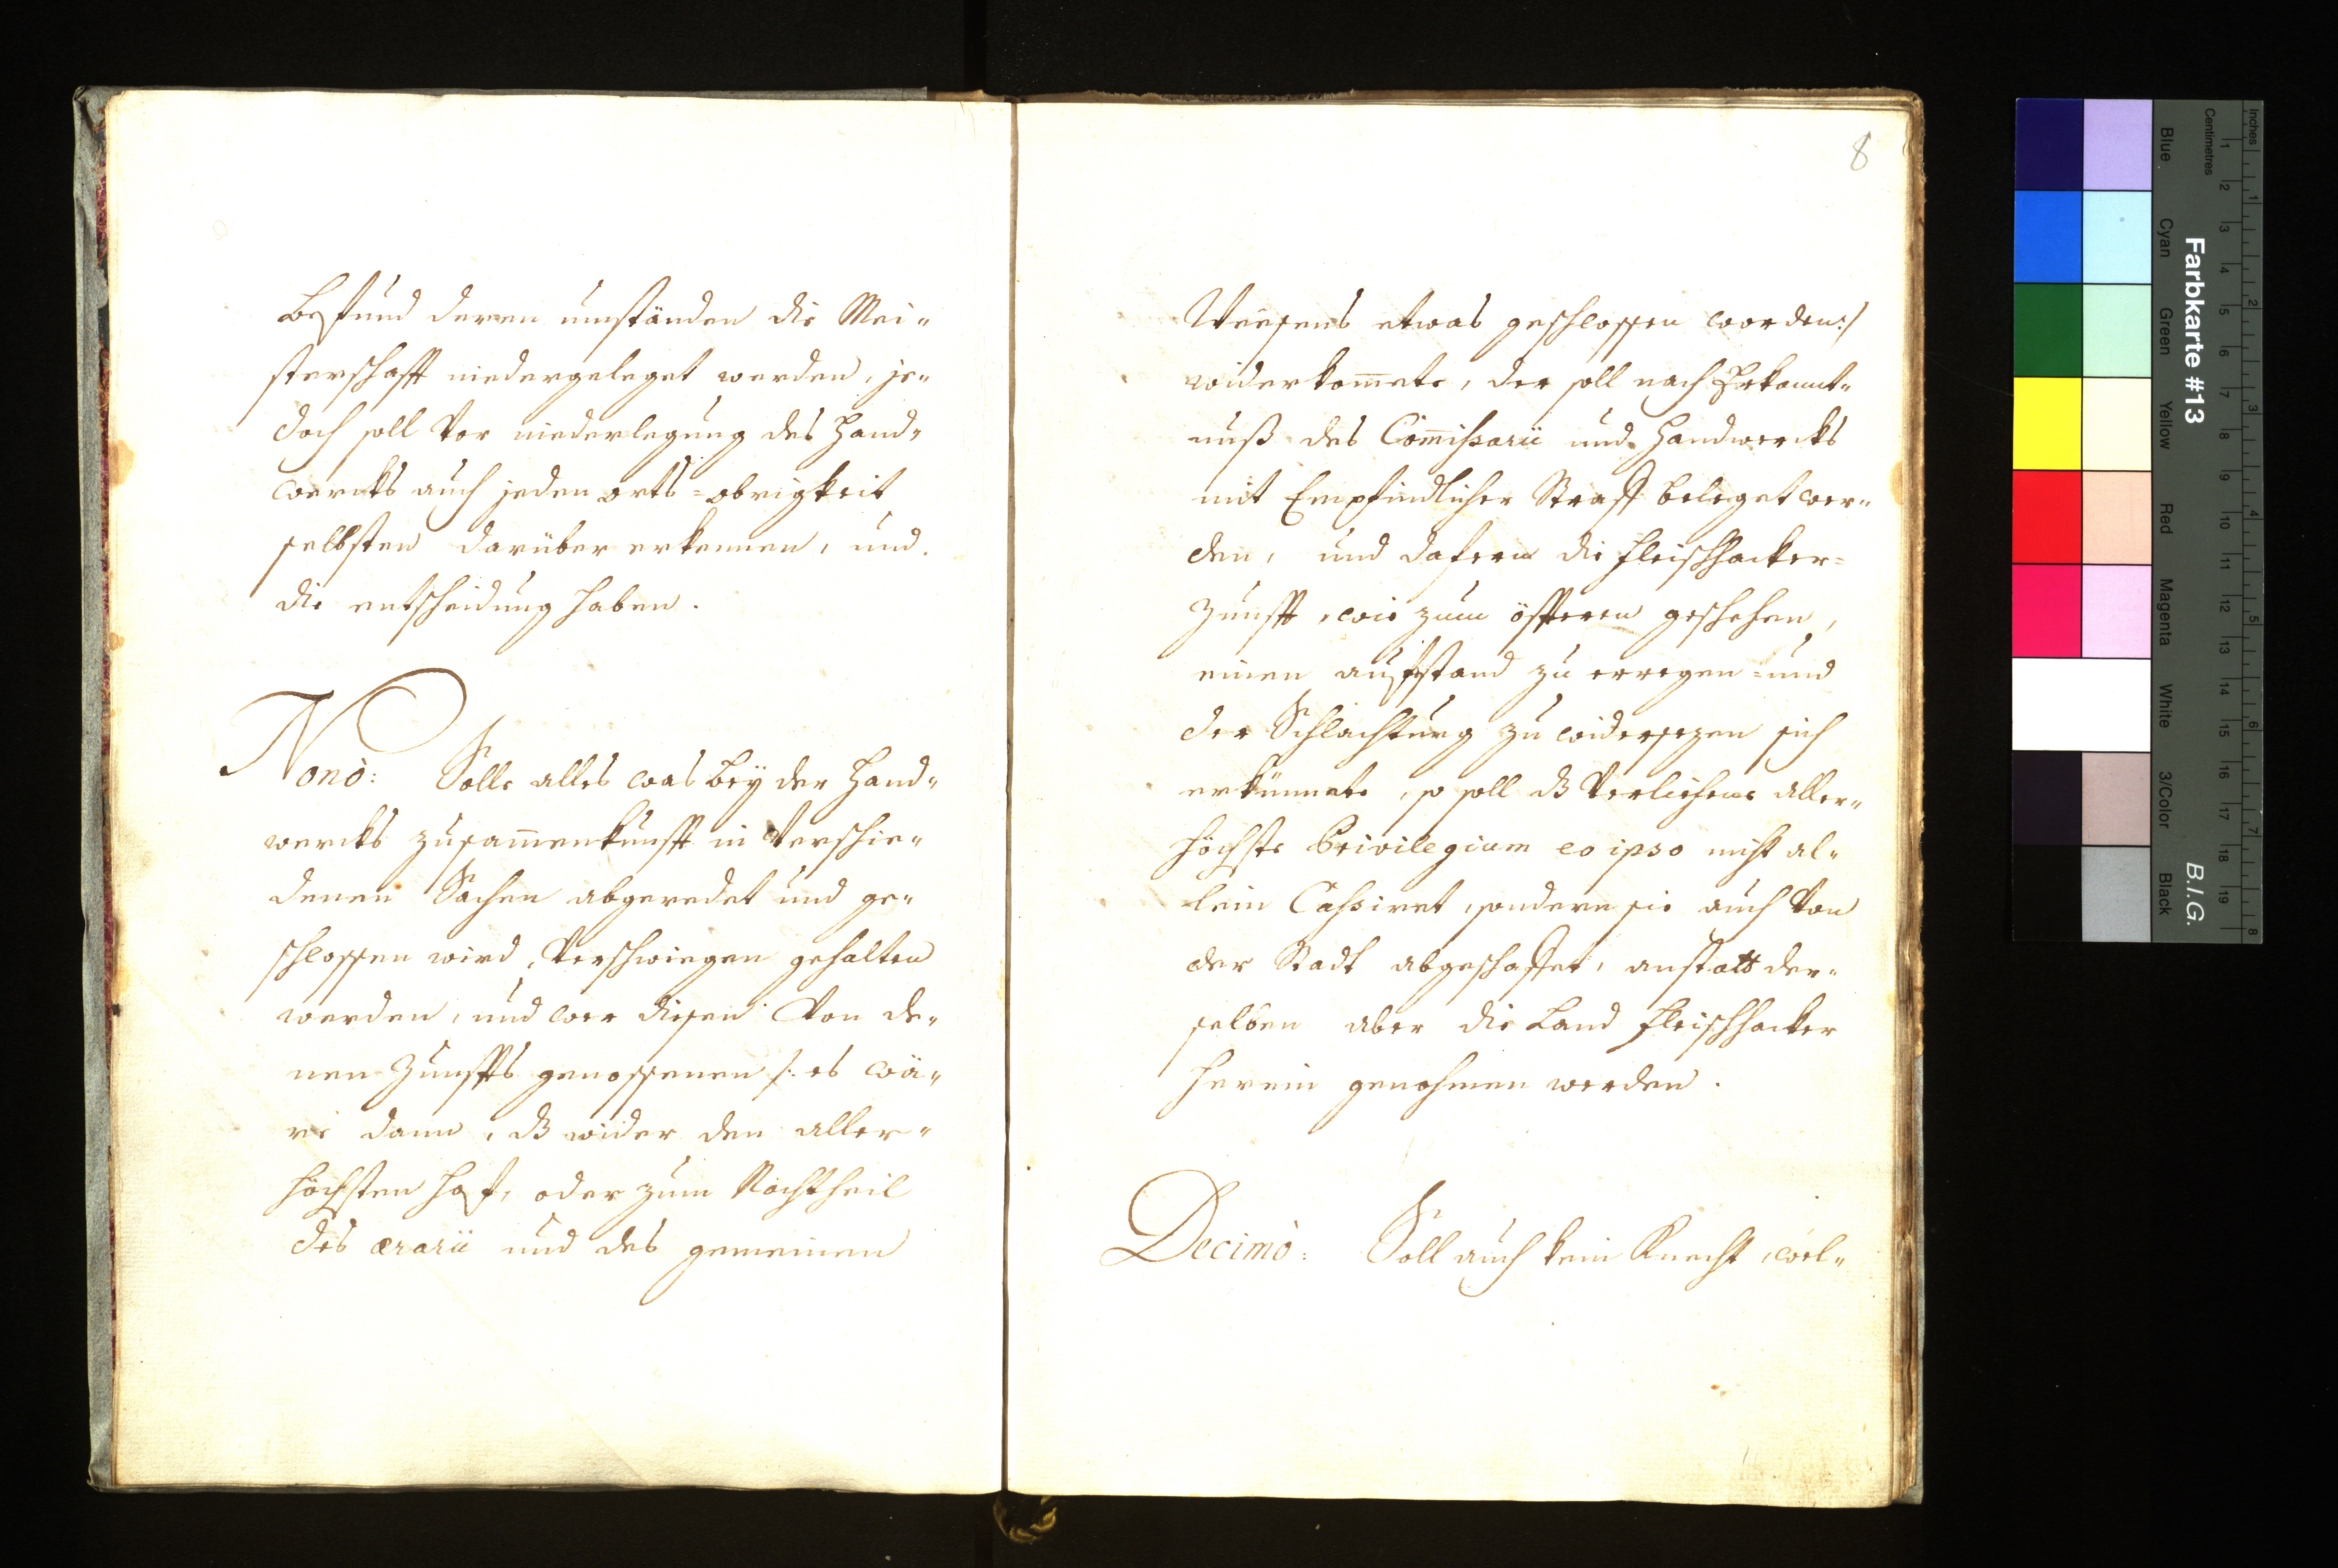 Befund deren umständen die Mei„
sterschafft niedergeleget werden, je„
doch soll vor niederlegung des Hand„
wercks auch jeden orts=obrigkeit
selbsten darüber erkennen, und
die entscheidung haben.
Nonò: Solle alles was bey der Hand„
wercks zusam̅enkunfft in verschie„
denen Sachen abgeredet und ge„
schlossen wird, verschwiegen gehalten
werden, und wer diesen von de„
nen Zunffts genossenen /: es wä„
re dann, dß wider den aller„
höchsten Hof, oder zum Nachtheil
des ærarii und des gemeinen
8
Weesens etwas geschlossen worden :/
widerkom̅ete, der soll nach Erkannt„
nuß des Com̅issarii und Handwercks
mit Empfindlicher Straff beleget wer„
den, und dafern die fleischhacker=
Zunfft, wie zum öffteren geschehen,
einen auffstand zu erregen= und
der Schlachtung zu widersezen sich
erkünnete, so soll dß verliehene aller„
höchste Privilegium eo ipso nicht al„
lein Cassiret, sondern sie auch von
der Stadt abgeschaffet, anstatt der„
selben aber die Land fleischhacker
herein genohmen werden.
Decimò: Soll auch kein Knecht, wel„
Inches
Centimetres
1 2 3 4 5 6 7 8 9 10 11 12 13 14 15 16 17 18 19
1 2 3 4 5 6 7 8
Farbkarte #13
B.I.G.
Blue Cyan Green Yellow Red Magenta White 3/Color Black